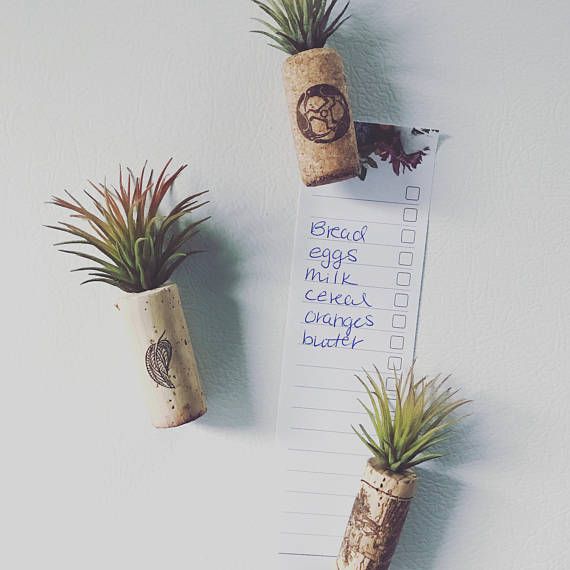 Bread
eggs
milk
cereal
oranges
butter